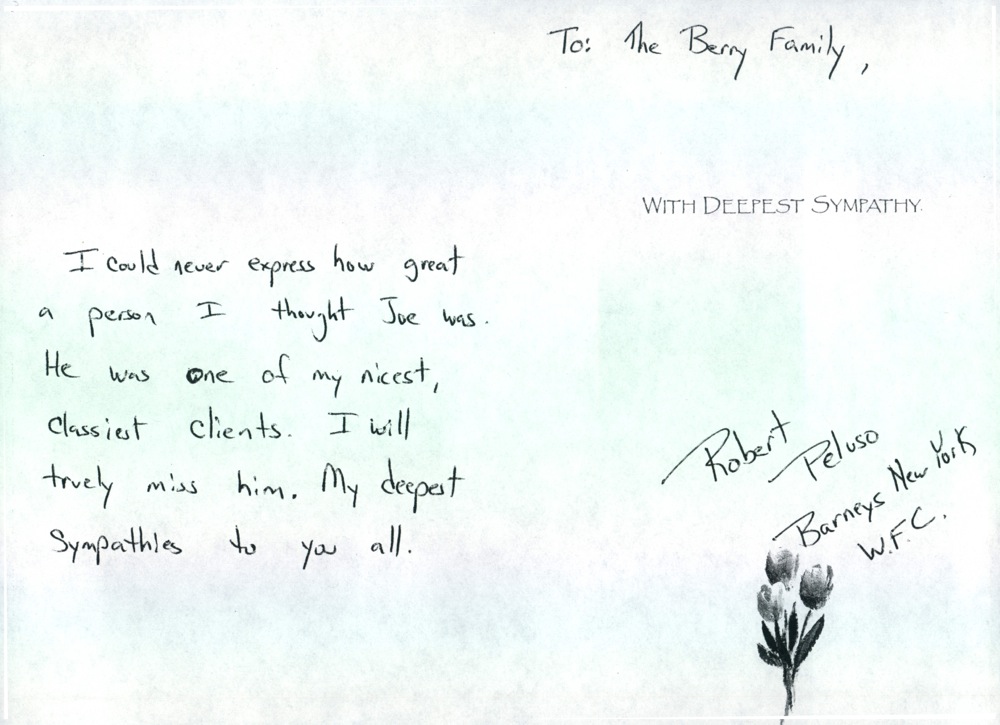 To: The Berry Family,
WITH DEEPEST SYMPATHY.
I could never express how great
a person I thought Joe was.
He was one of my nicest,
classiest clients. I will
truely miss him. My deepest
Sympathies to you all.
Robert Peluso
Barneys New York
W.F.C.